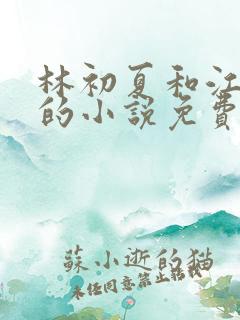 林初夏和江
的小說免費
蘇小逝的猫
未经同意禁止转载